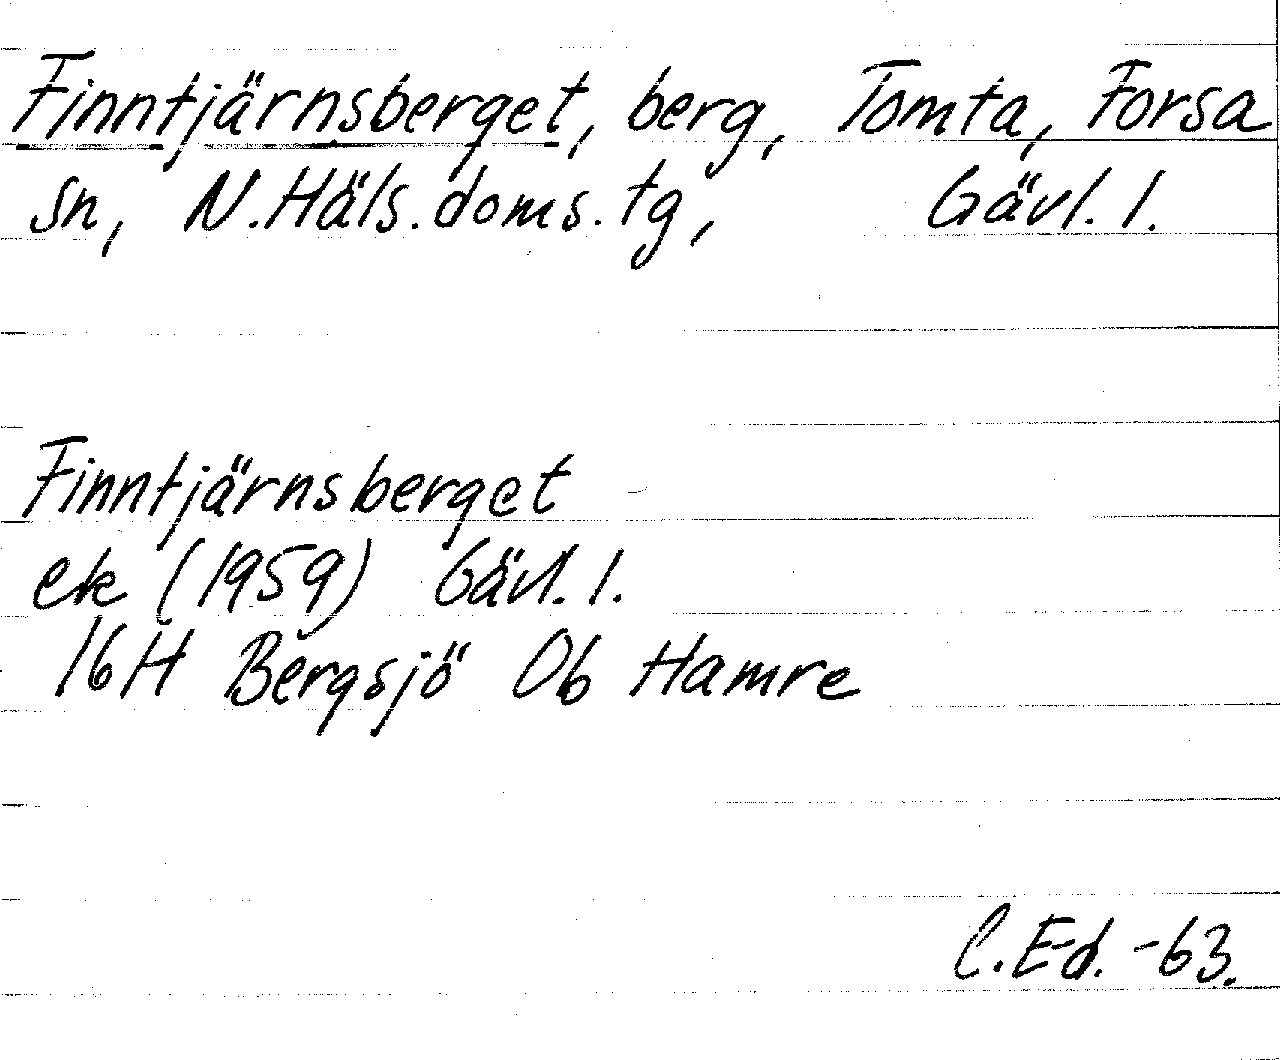 Finntjärnsberget, berg, Tomta, Forsa
sn, N.Häls.doms.tg, Gävl.l.
Finntjärnsberget
ek (1959) Gävl.l.
16H Bergsjö Ob Hamre
C.Ed.-63.